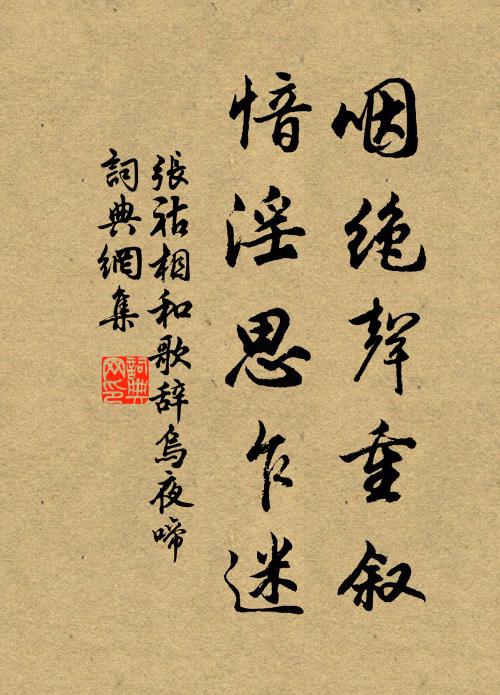 咽絶聲重叙
愔淫思乍迷
張祜相和歌辞烏夜啼
詞典網集
詞典
网印